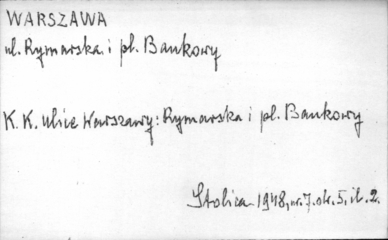 WARSZAWA
ul. Rymarska i pl. Bankowy
K. K. ulice Warszawy: Rymarska i pl. Bankowy
Stolica 1948, nr. 7. ok. 5, il. 2.